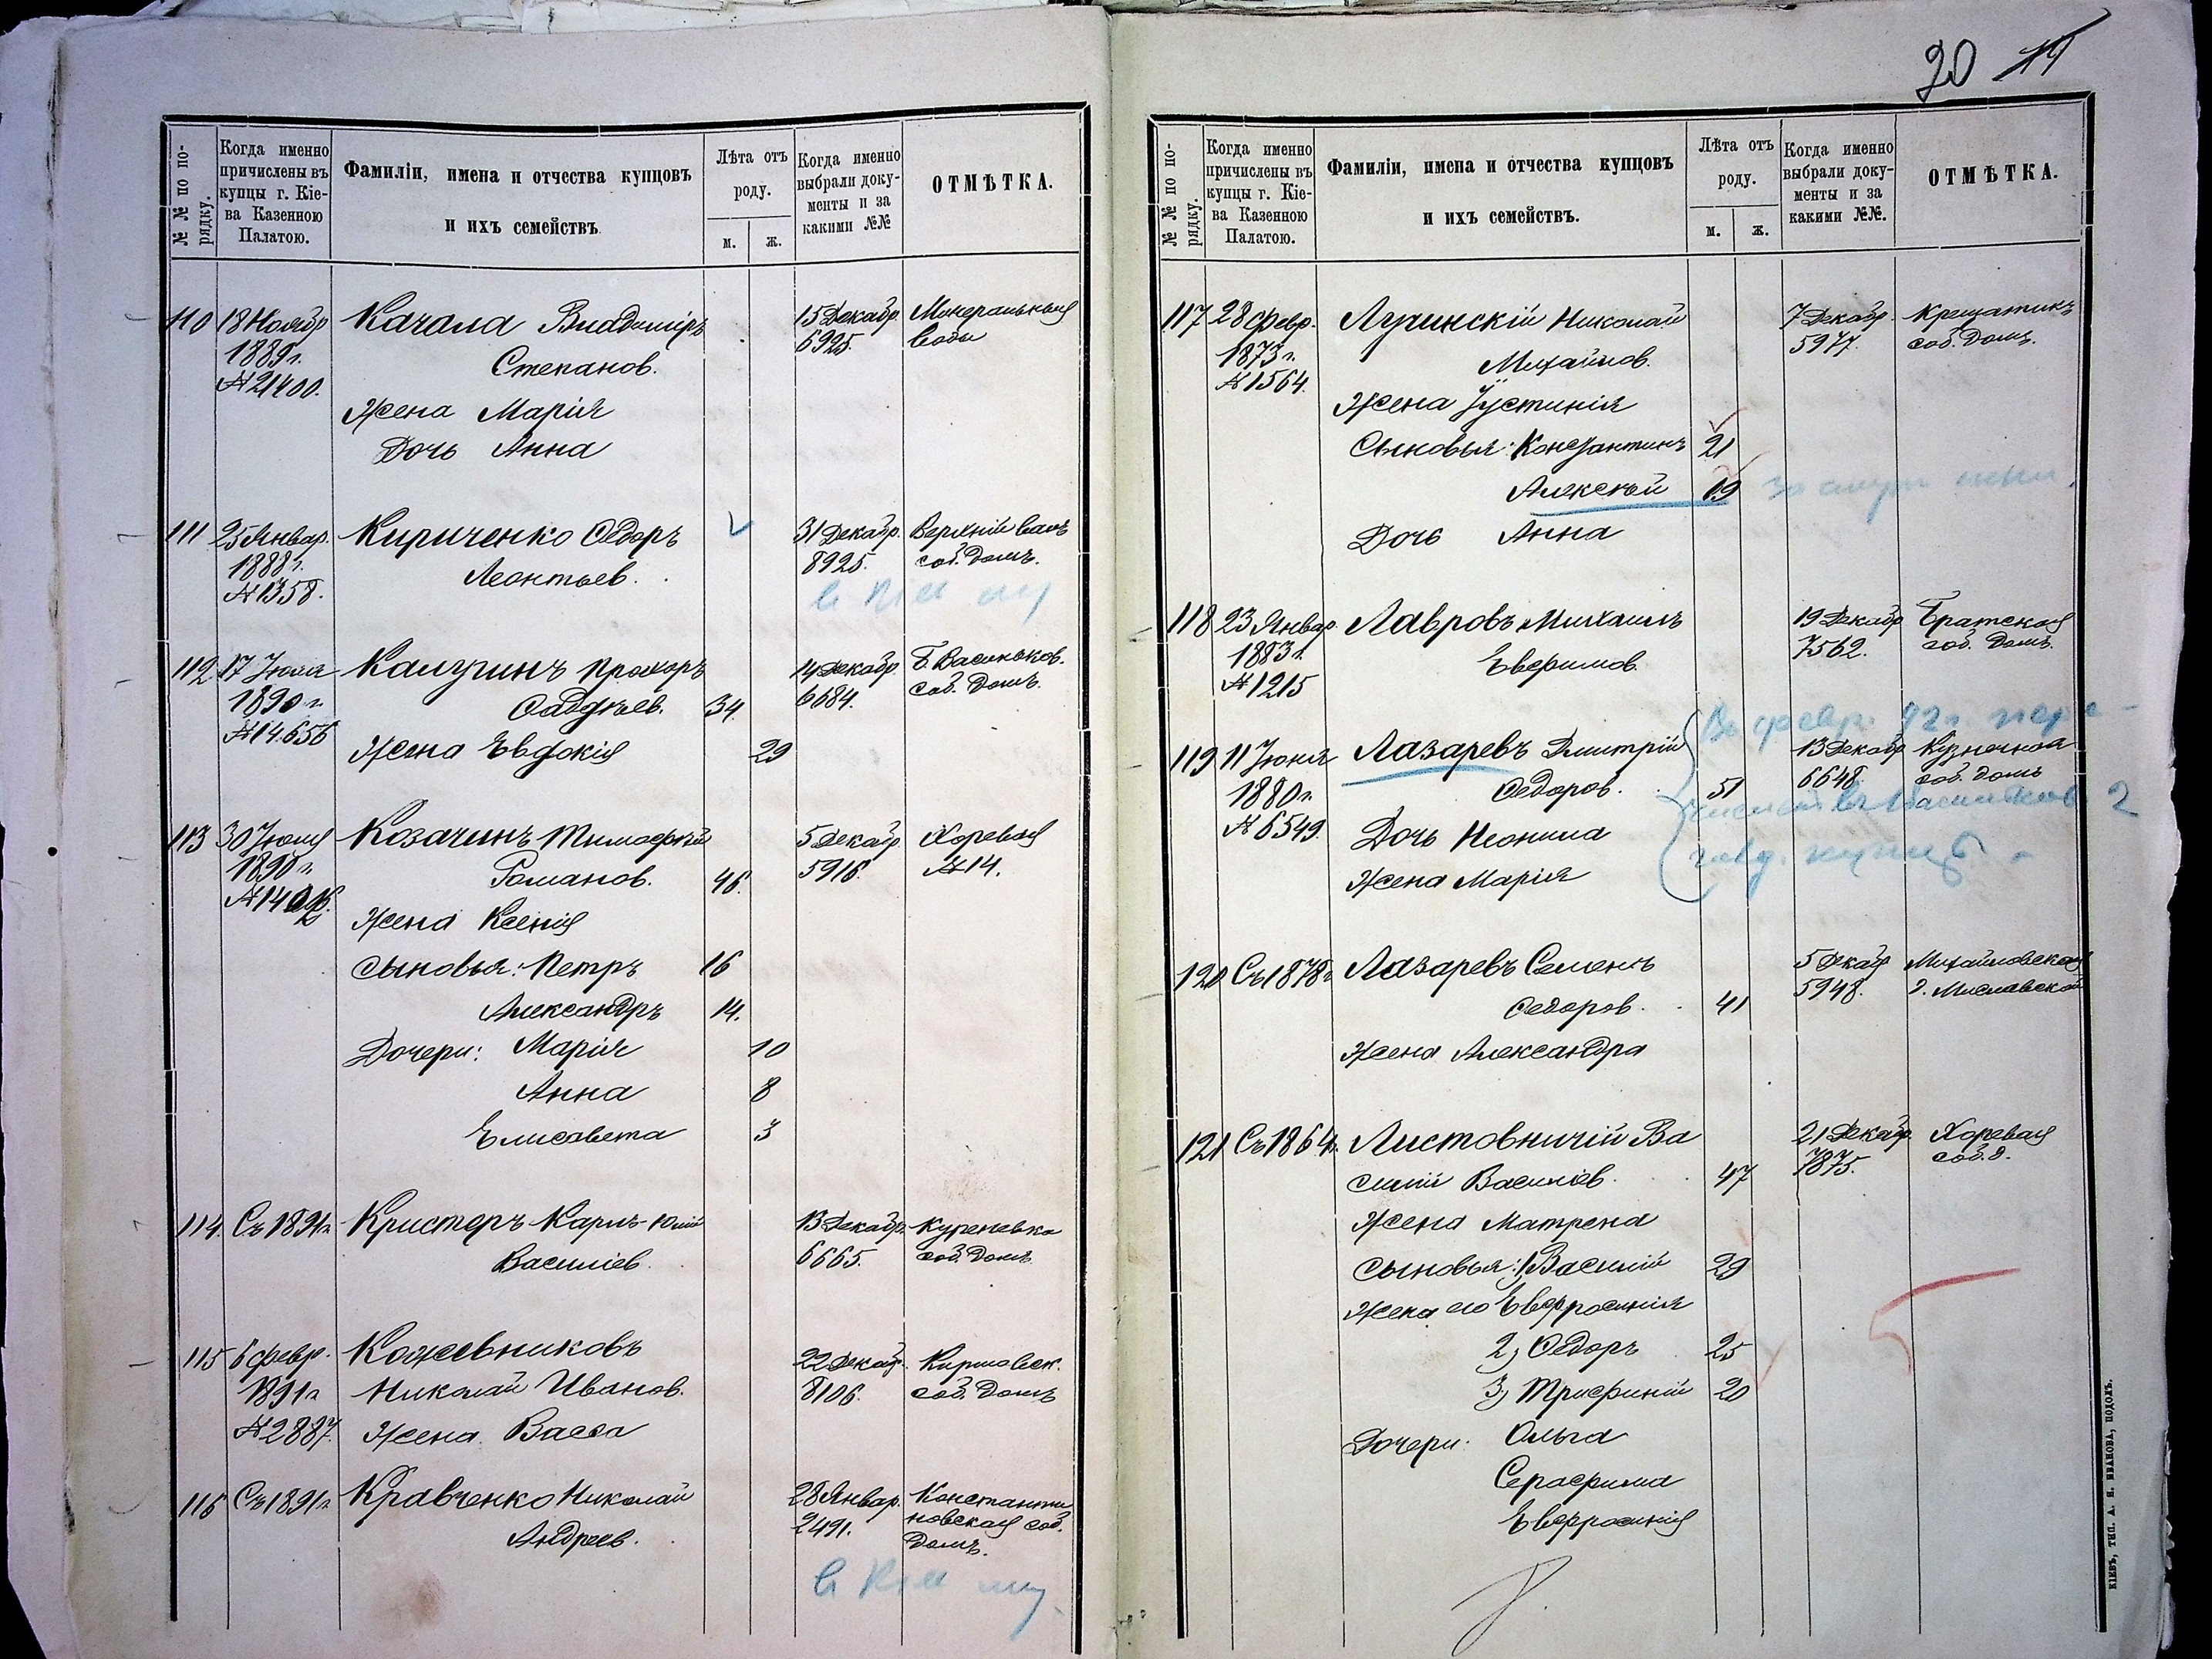 20 14
№№ по по-
рядку.
Когда именно
причислены въ
купцы г. Кіе-
ва Казенною
Палатою.
Фамиліи, имена и отчества купцовъ
и ихъ семействъ
Лѣта отъ
роду.
м. ж.
Когда именно
выбрали доку-
менты и за
какими №№
ОТМѢТКА.
110 18 Ноябр Качала Владиміръ 15 Декабр. Минеральныя
1889 г. Степанов. 6925. воды
№21400.
Жена Марія
Дочь Анна
111 25 Январ. Кириченко Ѳедоръ 31 Декабр. Верхній валъ
1888 г. Леонтьев. 8925. соб. Домъ.
№1358.
112 17 Іюля Калугинъ Прохоръ 14 Декабр. Б. Васильков.
1890 г. Савдѣев. 34. 6684. соб. Домъ.
№14.656
Жена Евдокія 29
113 30 Іюля Козачинъ Тимофей 5 Декабр. Хоревая
1890 г. Романов. 46. 5916. №14.
Жена Ксенія
Сыновья: Петръ 16
Александръ 14.
Дочери: Марія 10
Анна 8
Елисавета 3
114. Съ 1891 г. Кристеръ Карлъ-Юлій 13 Декабр. Куреневка
Василіев. 6665. соб. Домъ
115 6 февр. Кожевниковъ 22 Декабр. Кириловск.
1891 г. Николай Иванов. 8106. соб. Домъ
№2887. Жена Васса
116 Съ 1891 г. Кравченко Николай 28 Январ. Константи
Андреев. 2491. новская соб.
Домъ.
№№ по по-
рядку.
Когда именно
причислены въ
купцы г. Кіе-
ва Казенною
Палатою.
Фамиліи, имена и отчества купцовъ
и ихъ семействъ.
Лѣта отъ
роду.
м. ж.
Когда именно
выбрали доку-
менты и за
какими №№.
ОТМѢТКА.
117 28 февр. Лучинскій Николай 7 Декабр. Крещатикъ
1873 г. Михайлов. 5977. соб. Домъ.
№1564.
Жена Іустинія
Сыновья: Константинъ 21
Алексѣй 19
Дочь Анна
118 23 Январ Лавровъ Михаилъ 19 Декабр Братская
1883 г. Евфимов. 7562. соб. Домъ.
№1215
Въ февр. 92 г. пере-
119 11 Іюня Лазаревъ Дмитрій 13 Декабр Кузнечная
1880 г. Ѳедоров. 51 6648. соб. домъ
№6549. Дочь Неонила
Жена Марія
120 Съ 1878 г. Лазаревъ Семенъ 5 Декабр Михайловская
Ѳедоров. 41 5948. д. Миславской
Жена Александра
121 Съ 1864 г. Листовничій Ва 21 Декабр. Хоревая
силій Василіев. 47 7875. соб. д.
Жена Матрена
Сыновья: 1, Василій 29
Жена его Евфросинія
2, Ѳедоръ 25
3, Трифилій 20
Дочери: Ольга
Серафима
Евфросинія
КІЕВЪ, ТИП. А. Н. ИВАНОВА, ПОДОЛЪ.